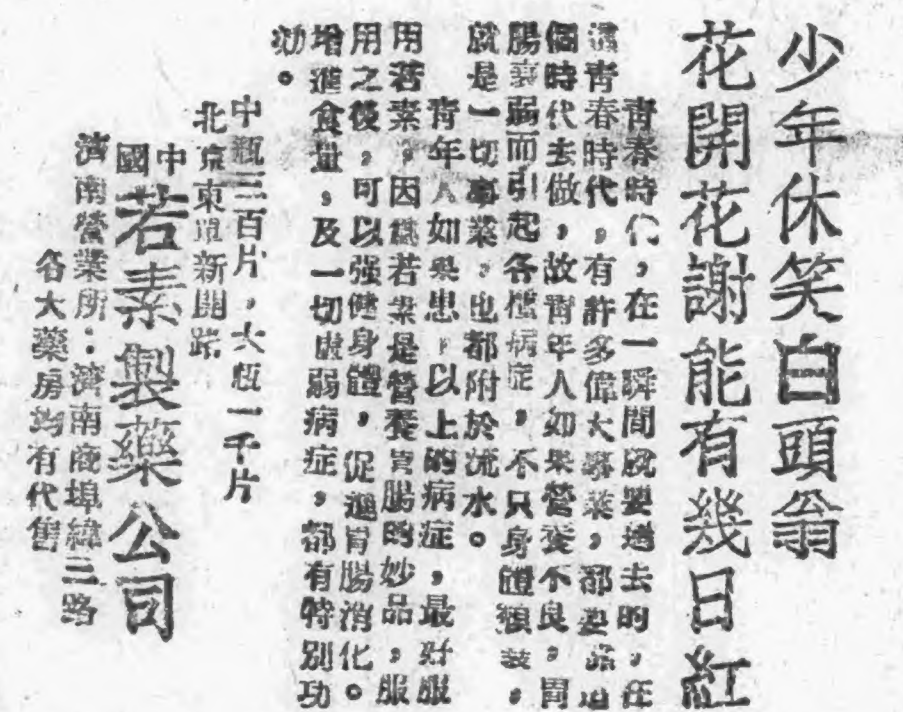 少年休笑白頭翁
花開花謝能有幾日紅
青春時代，在一瞬間就要過去的，在
這青春時代，有許多偉大事業，都要在這
個時代去做，故青年人如果營養不良，胃
腸衰弱而引起各種病症，不只身體頹衰，
就是一切事業，也都附於流水。
青年人如果患，以上的病症，最好服
用若素，因為若素是營養胃腸的妙品，服
用之後，可以强健身體，促進胃腸消化。
增進食量，及一切虛弱病症，都有特別功
効。
中瓶三百片，大瓶一千片
北京東單新開路
中國若素製藥公司
濟南營業所：濟南商埠緯三路
各大藥房均有代售